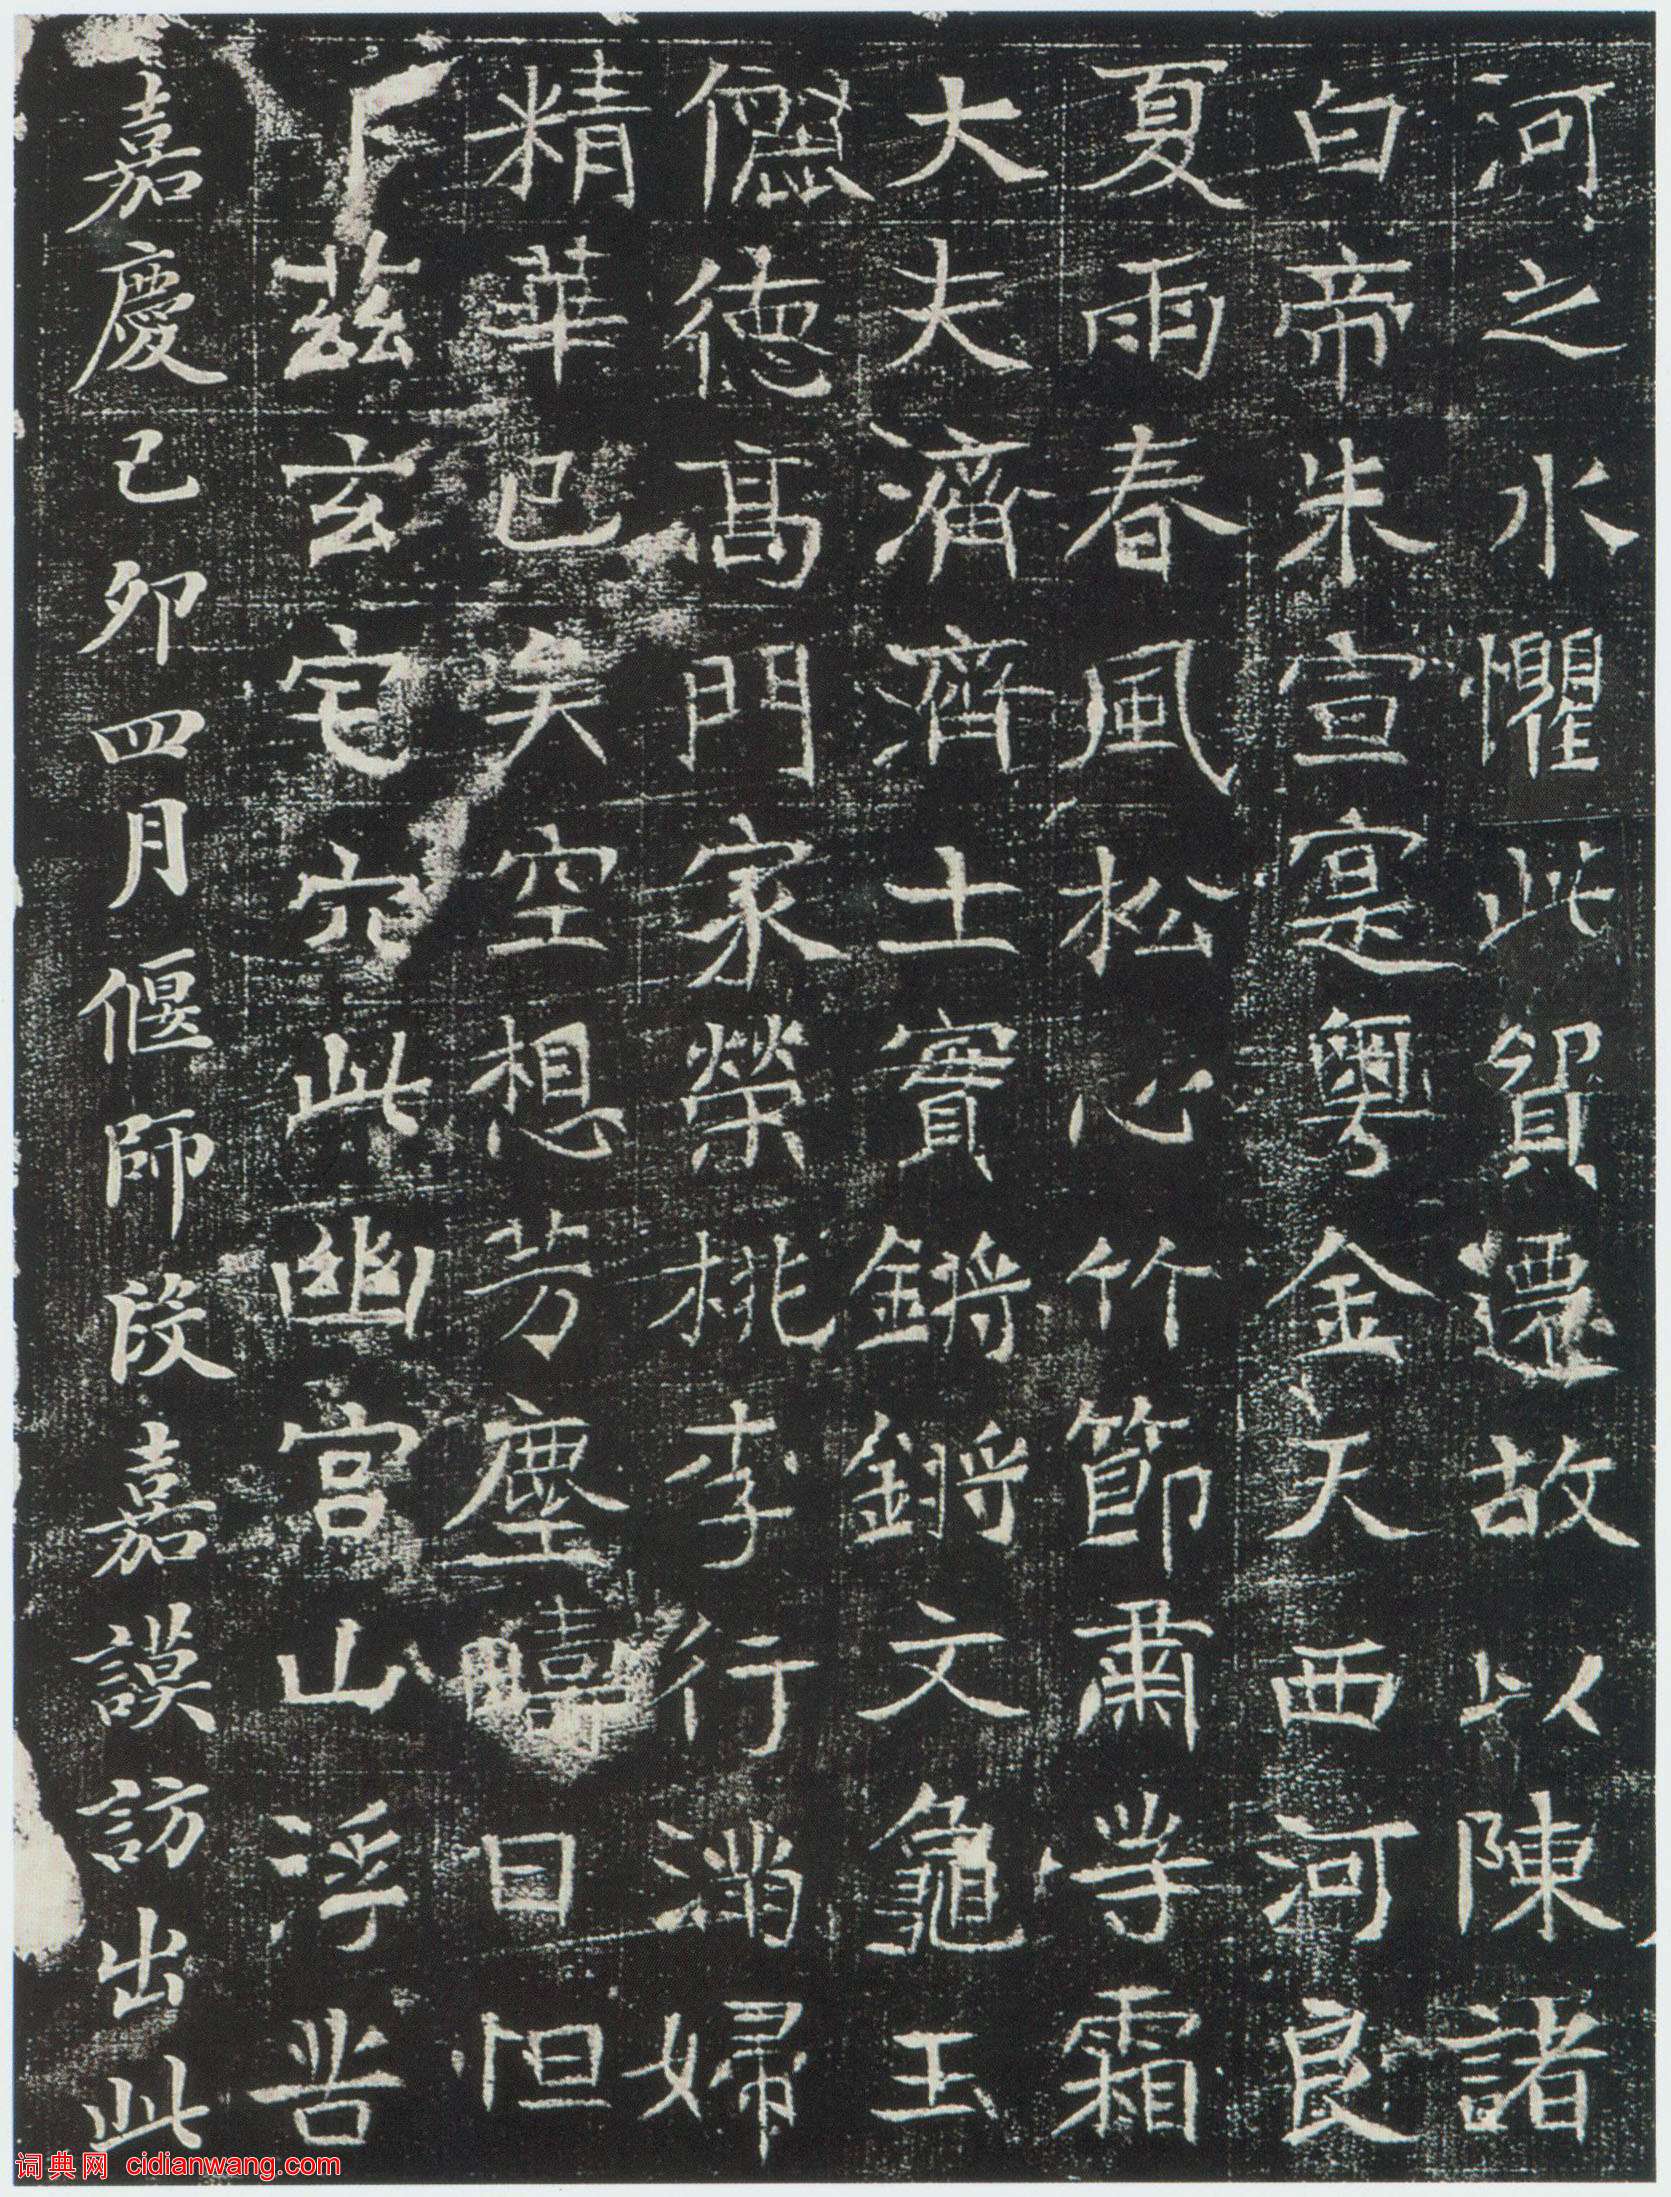 河之水懼此貿遷故以陳諸
白帝朱宣寔粵金天西河良
夏雨春風松心竹節肅等霜
大夫濟濟士實鏘鏘文龜玉
儷德高門家榮桃李行消婦
精華已矣空想芳塵嘻日怛
下茲玄宅穴此幽宮山浮苦
嘉慶己卯四月偃師段嘉謨訪出此
词典网 cidianwang.com